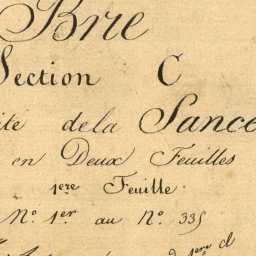 Brie
Section C
dela Sance
en Deux Feuilles
1ere Feuille.
N.o 1.er au N.o 335
1ere d